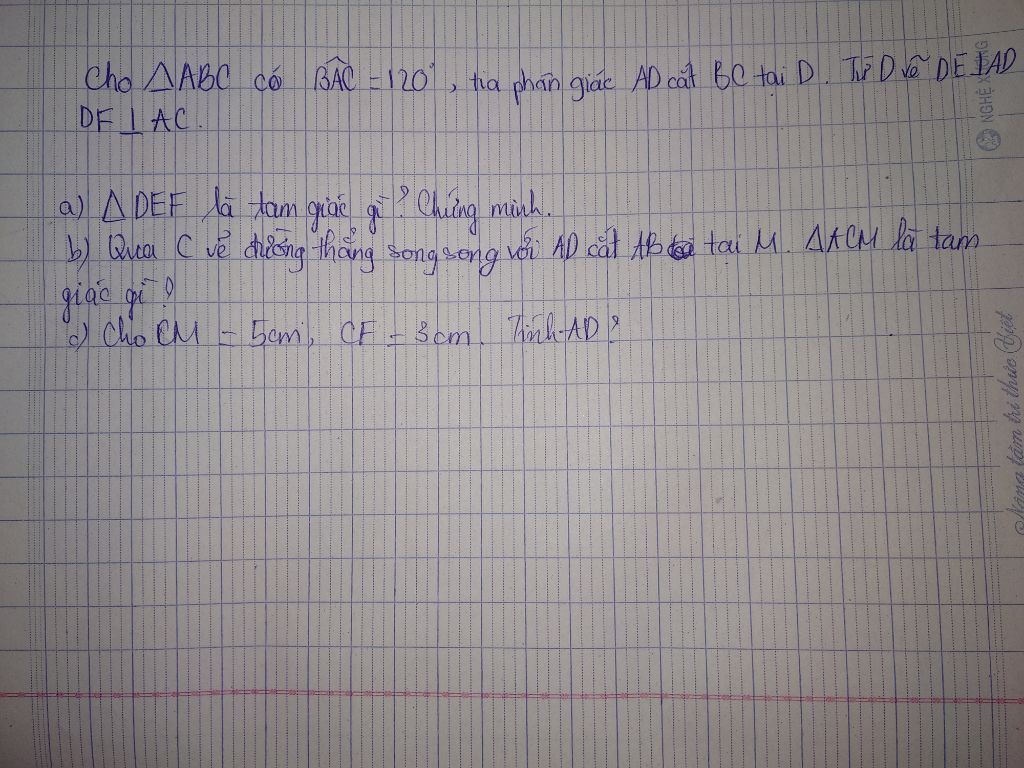 Cho △ABC có BÂC = 120°, tia phân giác AD cắt BC tại D. Từ D vẽ DE⊥AD
DF⊥AC.
a) △DEF là tam giác gì? Chứng minh.
b) Qua C vẽ đường thẳng song song với AD cắt AB tại M. △ACM là tam
giác gì?
c) Cho CM = 5cm, CF = 3cm. Tính AD?
NGHỆ
Nâng tầm tri thức Việt